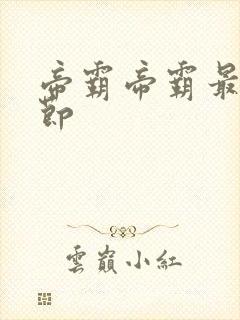 帝霸帝霸最
節
雲巔小紅